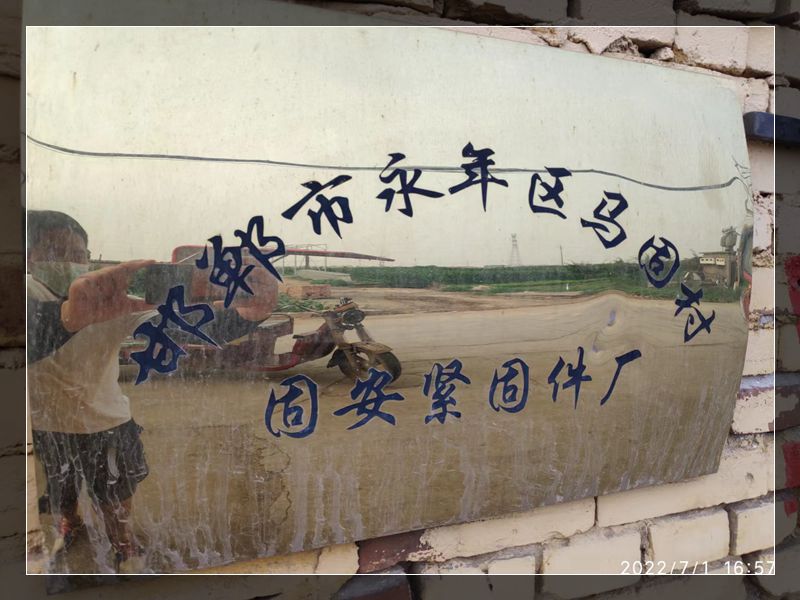 邯郸市永年区马固村
固安紧固件厂
2022/7/1 16:57